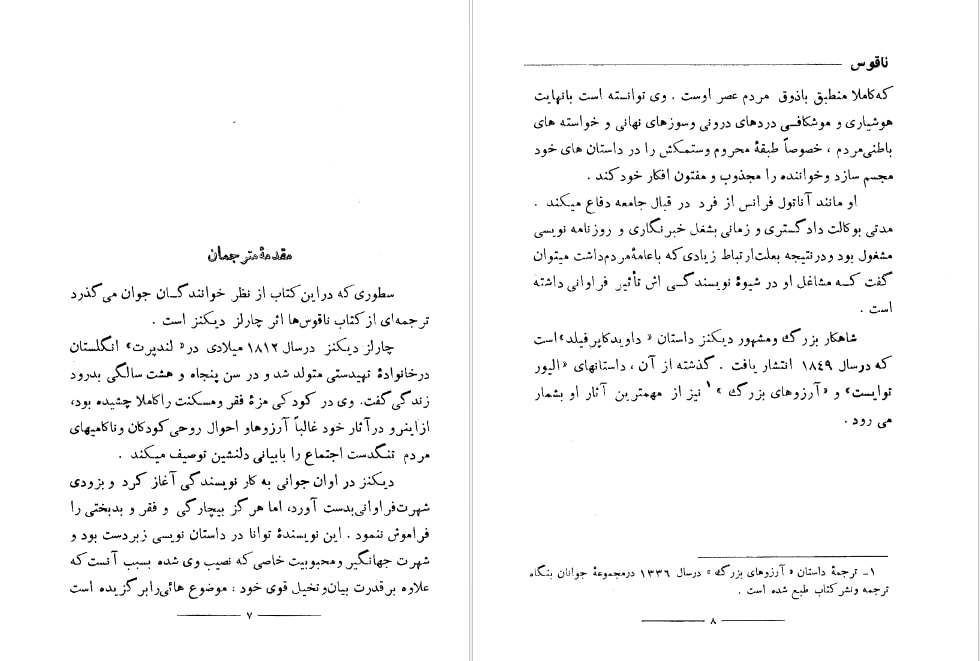 مقدمهٔ مترجمان
سطوری که در این کتاب از نظر خوانندگان جوان می‌گذرد
ترجمه‌ای از کتاب ناقوس‌ها اثر چارلز دیکنز است .
چارلز دیکنز درسال ۱۸۱۲ میلادی در « لندپرت » انگلستان
درخانوادهٔ تهیدستی متولد شد و در سن پنجاه و هشت سالگی بدرود
زندگی گفت. وی در کودکی مزهٔ فقر ومسکنت را کاملا چشیده بود،
از اینرو در آثار خود غالباً آرزوها و احوال روحی کودکان وناکامیهای
مردم تنگدست اجتماع را بابیانی دلنشین توصیف میکند .
دیکنز در اوان جوانی به کار نویسندگی آغاز کرد و بزودی
شهرت فراوانی بدست آورد، اما هرگز بیچارگی و فقر و بدبختی را
فراموش ننمود . این نویسندهٔ توانا در داستان نویسی زبردست بود و
شهرت جهانگیر ومحبوبیت خاصی که نصیب وی شده بسبب آنست که
علاوه بر قدرت بیان و تخیل قوی خود ، موضوع هائی را برگزیده است
۷
ناقوس
که کاملا منطبق باذوق مردم عصر اوست . وی توانسته است بانهایت
هوشیاری و موشکافی دردهای درونی وسوزهای نهانی و خواسته های
باطنی مردم ، خصوصاً طبقهٔ محروم وستمکش را در داستان های خود
مجسم سازد وخواننده را مجذوب و مفتون افکار خود کند .
او مانند آناتول فرانس از فرد در قبال جامعه دفاع میکند .
مدتی بوکالت دادگستری و زمانی بشغل خبرنگاری و روزنامه نویسی
مشغول بود ودرنتیجه بعلت ارتباط زیادی که باعامهٔ مردم داشت میتوان
گفت که مشاغل او در شیوهٔ نویسندگی اش تأثیر فراوانی داشته
است .
شاهکار بزرگ ومشهور دیکنز داستان « داوید کاپرفیلد » است
که درسال ۱۸۴۹ انتشار یافت . گذشته از آن ، داستانهای «الیور
توایست» و « آرزوهای بزرگ »۱ نیز از مهمترین آثار او بشمار
می رود .
۱ـ ترجمهٔ داستان « آرزوهای بزرگ » درسال ۱۳۳۶ درمجموعهٔ جوانان بنگاه
ترجمه ونشر کتاب طبع شده است .
۸